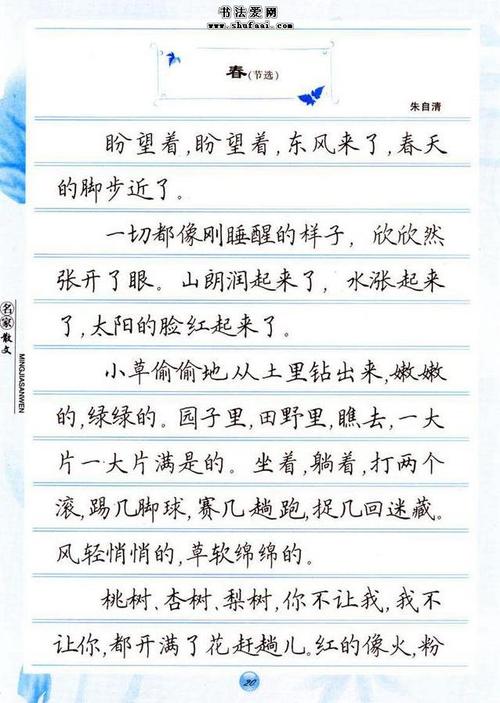 书法爱网
www.shufaai.com
春(节选)
朱自清
盼望着,盼望着,东风来了,春天
的脚步近了。
一切都像刚睡醒的样子, 欣欣然
张开了眼。山朗润起来了, 水涨起来
了,太阳的脸红起来了。
小草偷偷地从土里钻出来,嫩嫩
的,绿绿的。园子里,田野里,瞧去,一大
片一大片满是的。坐着,躺着,打两个
滚,踢几脚球,赛几趟跑,捉几回迷藏。
风轻悄悄的,草软绵绵的。
桃树、杏树、梨树,你不让我,我不
让你,都开满了花赶趟儿。红的像火,粉
名家散文
MINGJIASANWEN
20